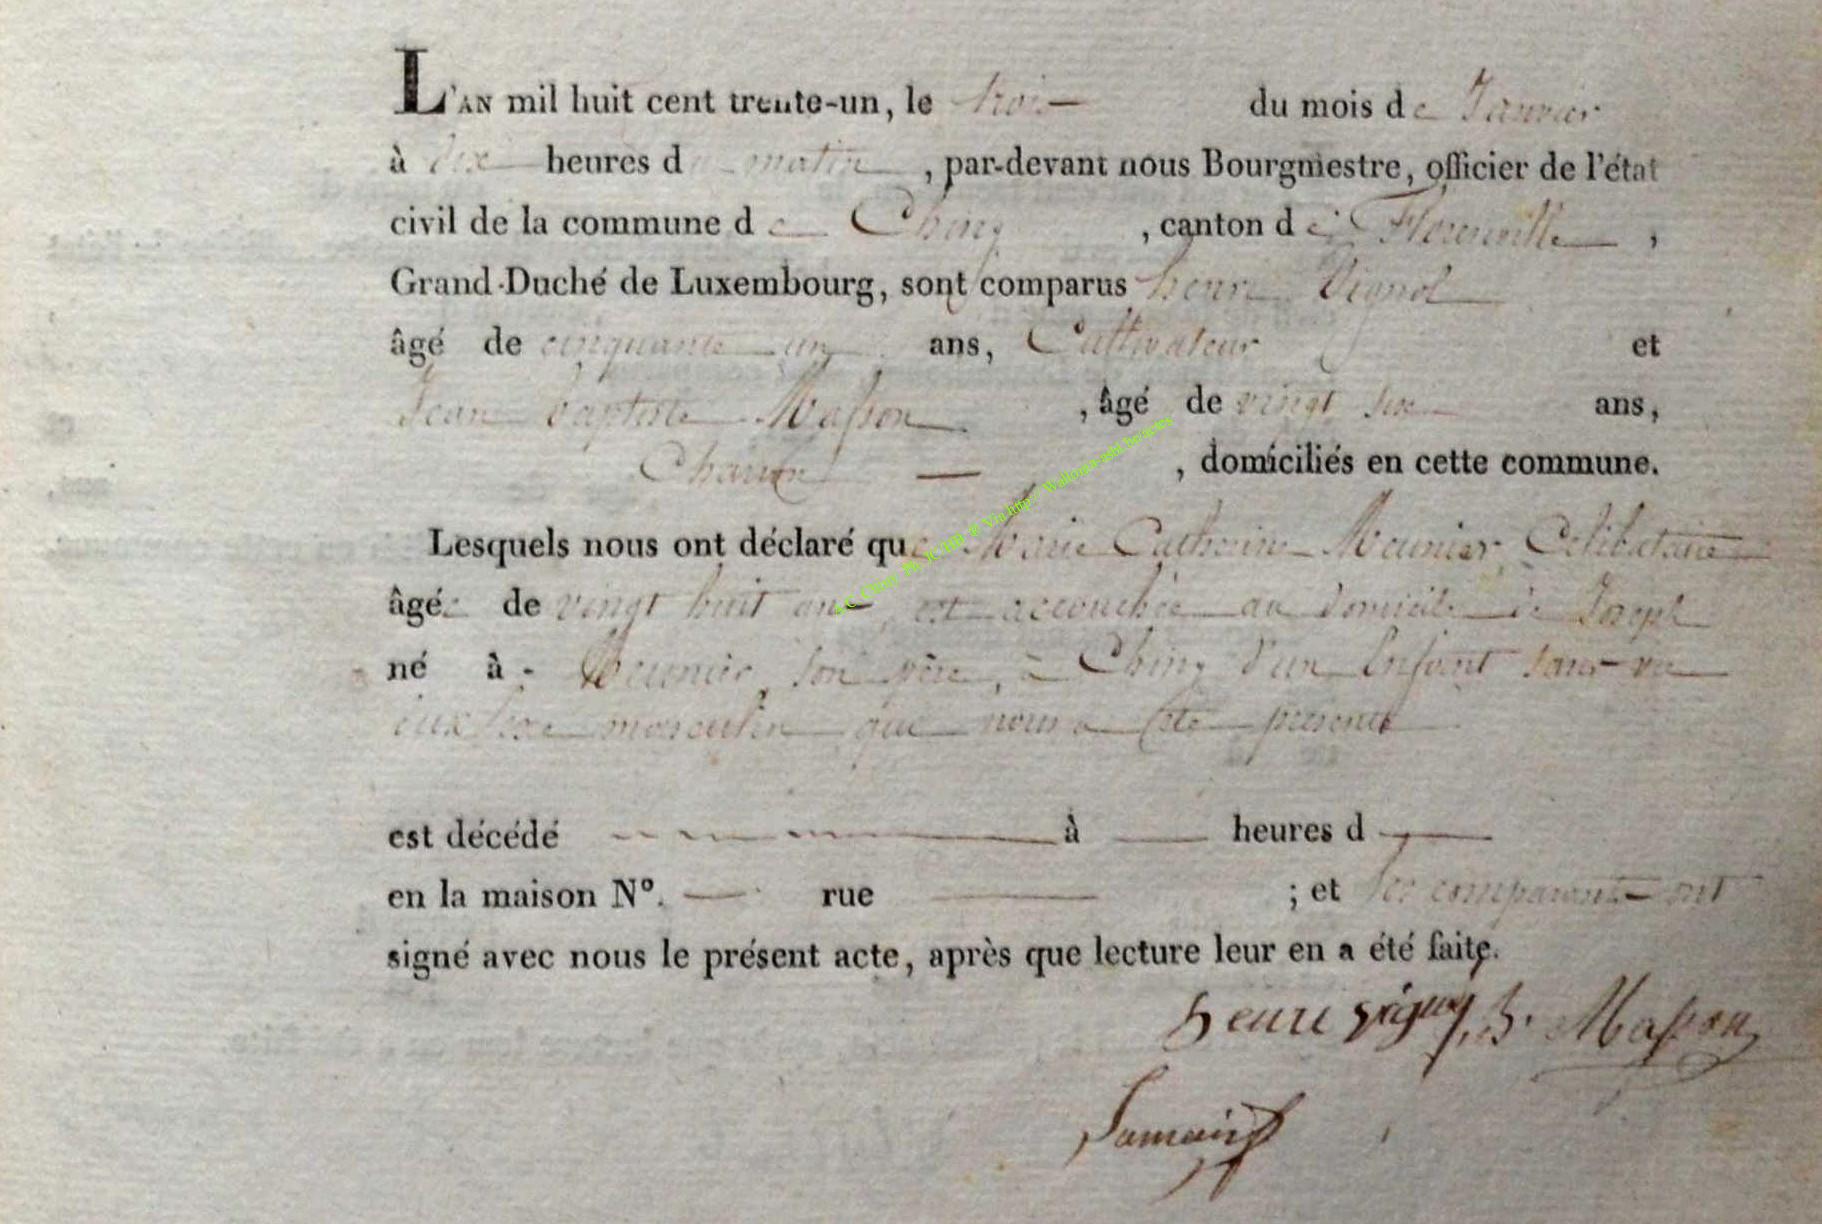 L'AN mil huit cent trente-un, le trois du mois de Janvier
à dix heures du matin, par-devant nous Bourgmestre, officier de l'état
civil de la commune de Chiny, canton de Florenville,
Grand-Duché de Luxembourg, sont comparus henri Vignol
âgé de cinquante un ans, Cultivateur et
Jean baptiste Masson, âgé de vingt six ans,
, domiciliés en cette commune.
Lesquels nous ont déclaré que Marie Catherine Meunier, Celibataire
âgée de vingt huit ans, est accouchée au domicile de Joseph
né à - Meunier, son père, à Chiny d'un Enfant sans vie
sexe masculin que nous a été presenté
est décédé à heures d
en la maison N°. rue ; et les comparants ont
signé avec nous le présent acte, après que lecture leur en a été faite.
henri J. B. Masson
Via http:// Wallonia-asbl.be/actes